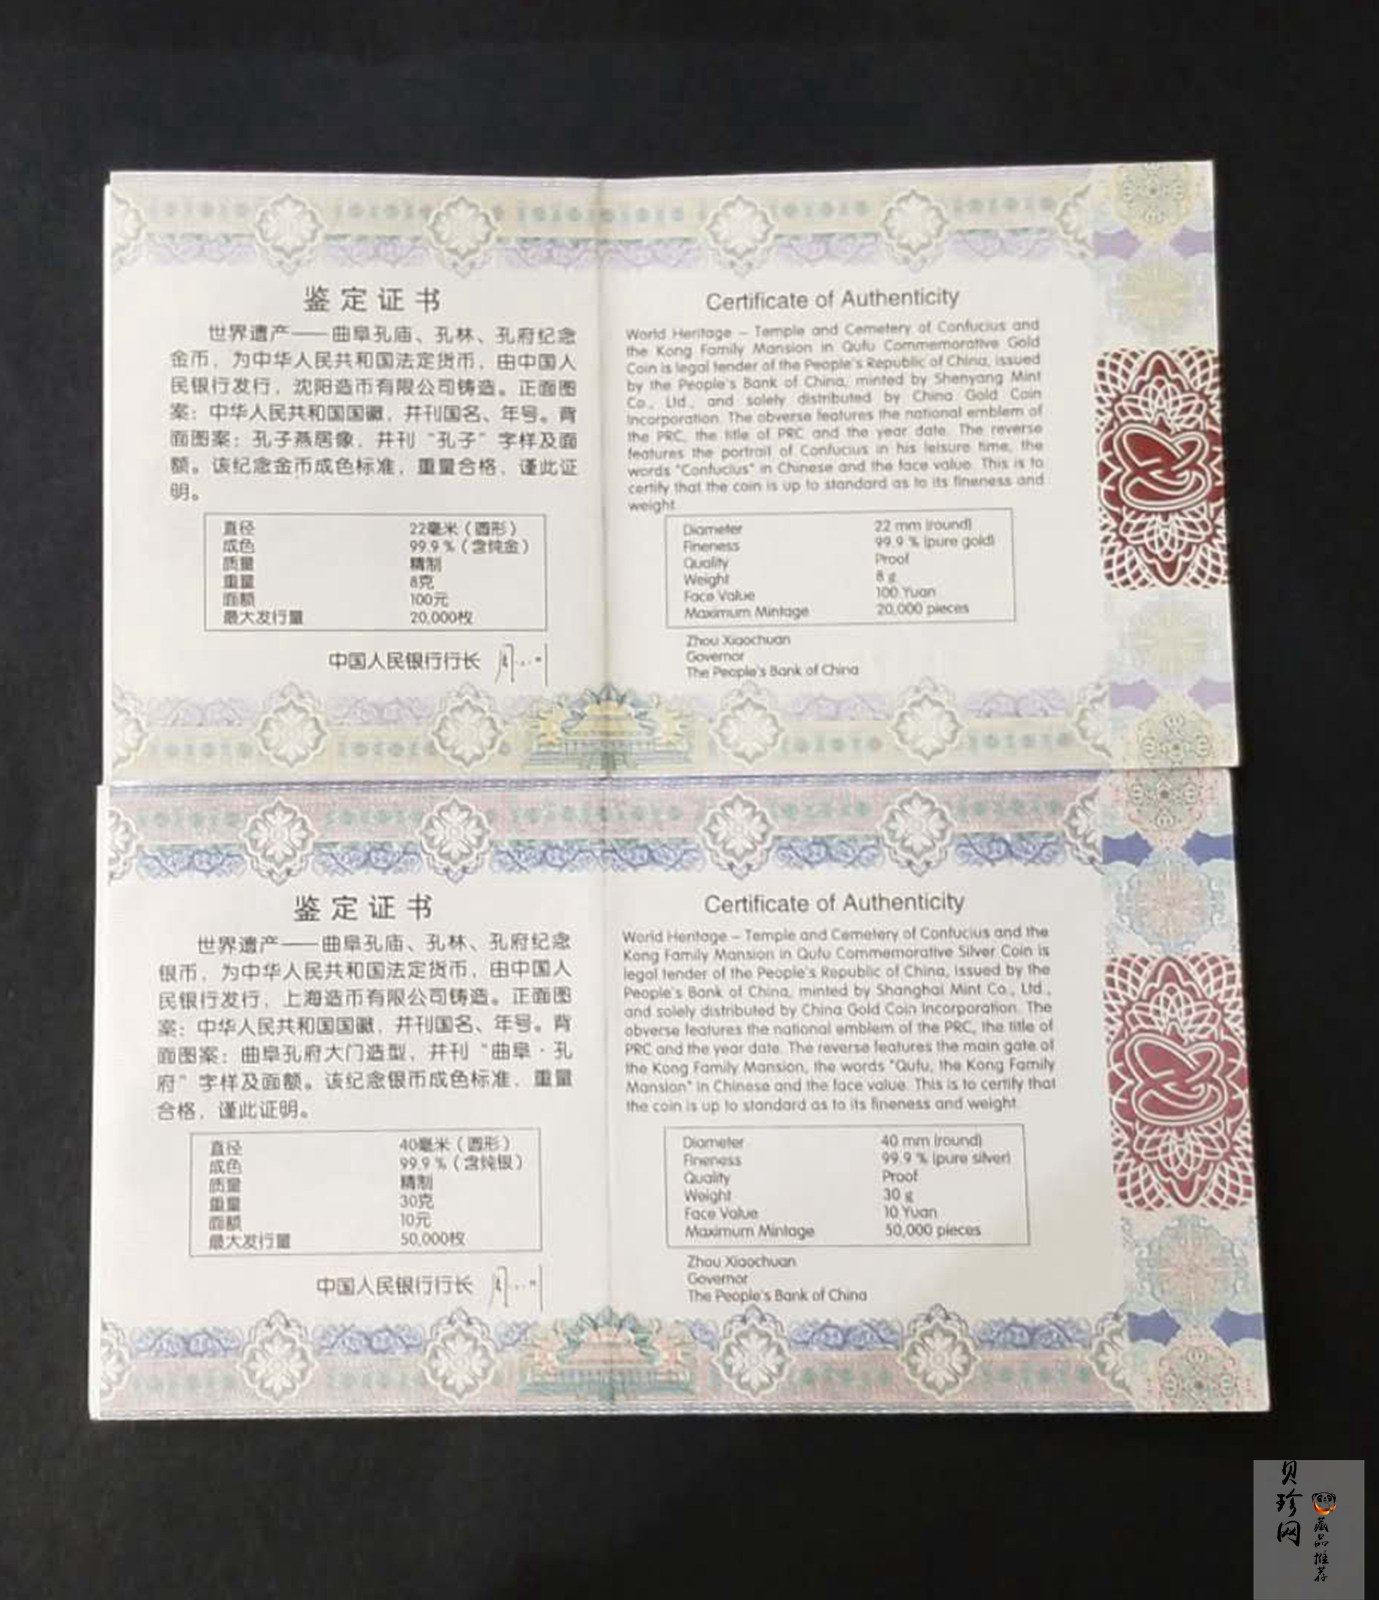 鉴定证书
世界遗产——曲阜孔庙、孔林、孔府纪念
金币，为中华人民共和国法定货币，由中国人
民银行发行，沈阳造币有限公司铸造。正面图
案：中华人民共和国国徽，并刊国名、年号。背
面图案：孔子燕居像，并刊“孔子”字样及面
额。该纪念金币成色标准，重量合格，谨此证
明。
直径 22毫米（圆形）
成色 99.9％（含纯金）
质量 精制
重量 8克
面额 100元
最大发行量 20,000枚
中国人民银行行长
Certificate of Authenticity
World Heritage – Temple and Cemetery of Confucius and
the Kong Family Mansion in Qufu Commemorative Gold
Coin is legal tender of the People's Republic of China, issued
by the People's Bank of China, minted by Shenyang Mint
Co., Ltd., and solely distributed by China Gold Coin
Incorporation. The obverse features the national emblem of
the PRC, the title of PRC and the year date. The reverse
features the portrait of Confucius in his leisure time, the
words "Confucius" in Chinese and the face value. This is to
certify that the coin is up to standard as to its fineness and
weight.
Diameter 22 mm (round)
Fineness 99.9 % (pure gold)
Quality Proof
Weight 8 g
Face Value 100 Yuan
Maximum Mintage 20,000 pieces
Zhou Xiaochuan
Governor
The People's Bank of China
鉴定证书
世界遗产——曲阜孔庙、孔林、孔府纪念
银币，为中华人民共和国法定货币，由中国人
民银行发行，上海造币有限公司铸造。正面图
案：中华人民共和国国徽，并刊国名、年号。背
面图案：曲阜孔府大门造型，并刊“曲阜·孔
府”字样及面额。该纪念银币成色标准，重量
合格，谨此证明。
直径 40毫米（圆形）
成色 99.9％（含纯银）
质量 精制
重量 30克
面额 10元
最大发行量 50,000枚
中国人民银行行长
Certificate of Authenticity
World Heritage – Temple and Cemetery of Confucius and the
Kong Family Mansion in Qufu Commemorative Silver Coin is
legal tender of the People's Republic of China, issued by the
People's Bank of China, minted by Shanghai Mint Co., Ltd.,
and solely distributed by China Gold Coin Incorporation. The
obverse features the national emblem of the PRC, the title of
PRC and the year date. The reverse features the main gate of
the Kong Family Mansion, the words "Qufu, the Kong Family
Mansion" in Chinese and the face value. This is to certify that
the coin is up to standard as to its fineness and weight.
Diameter 40 mm (round)
Fineness 99.9 % (pure silver)
Quality Proof
Weight 30 g
Face Value 10 Yuan
Maximum Mintage 50,000 pieces
Zhou Xiaochuan
Governor
The People's Bank of China
贝珍网
藏品推荐